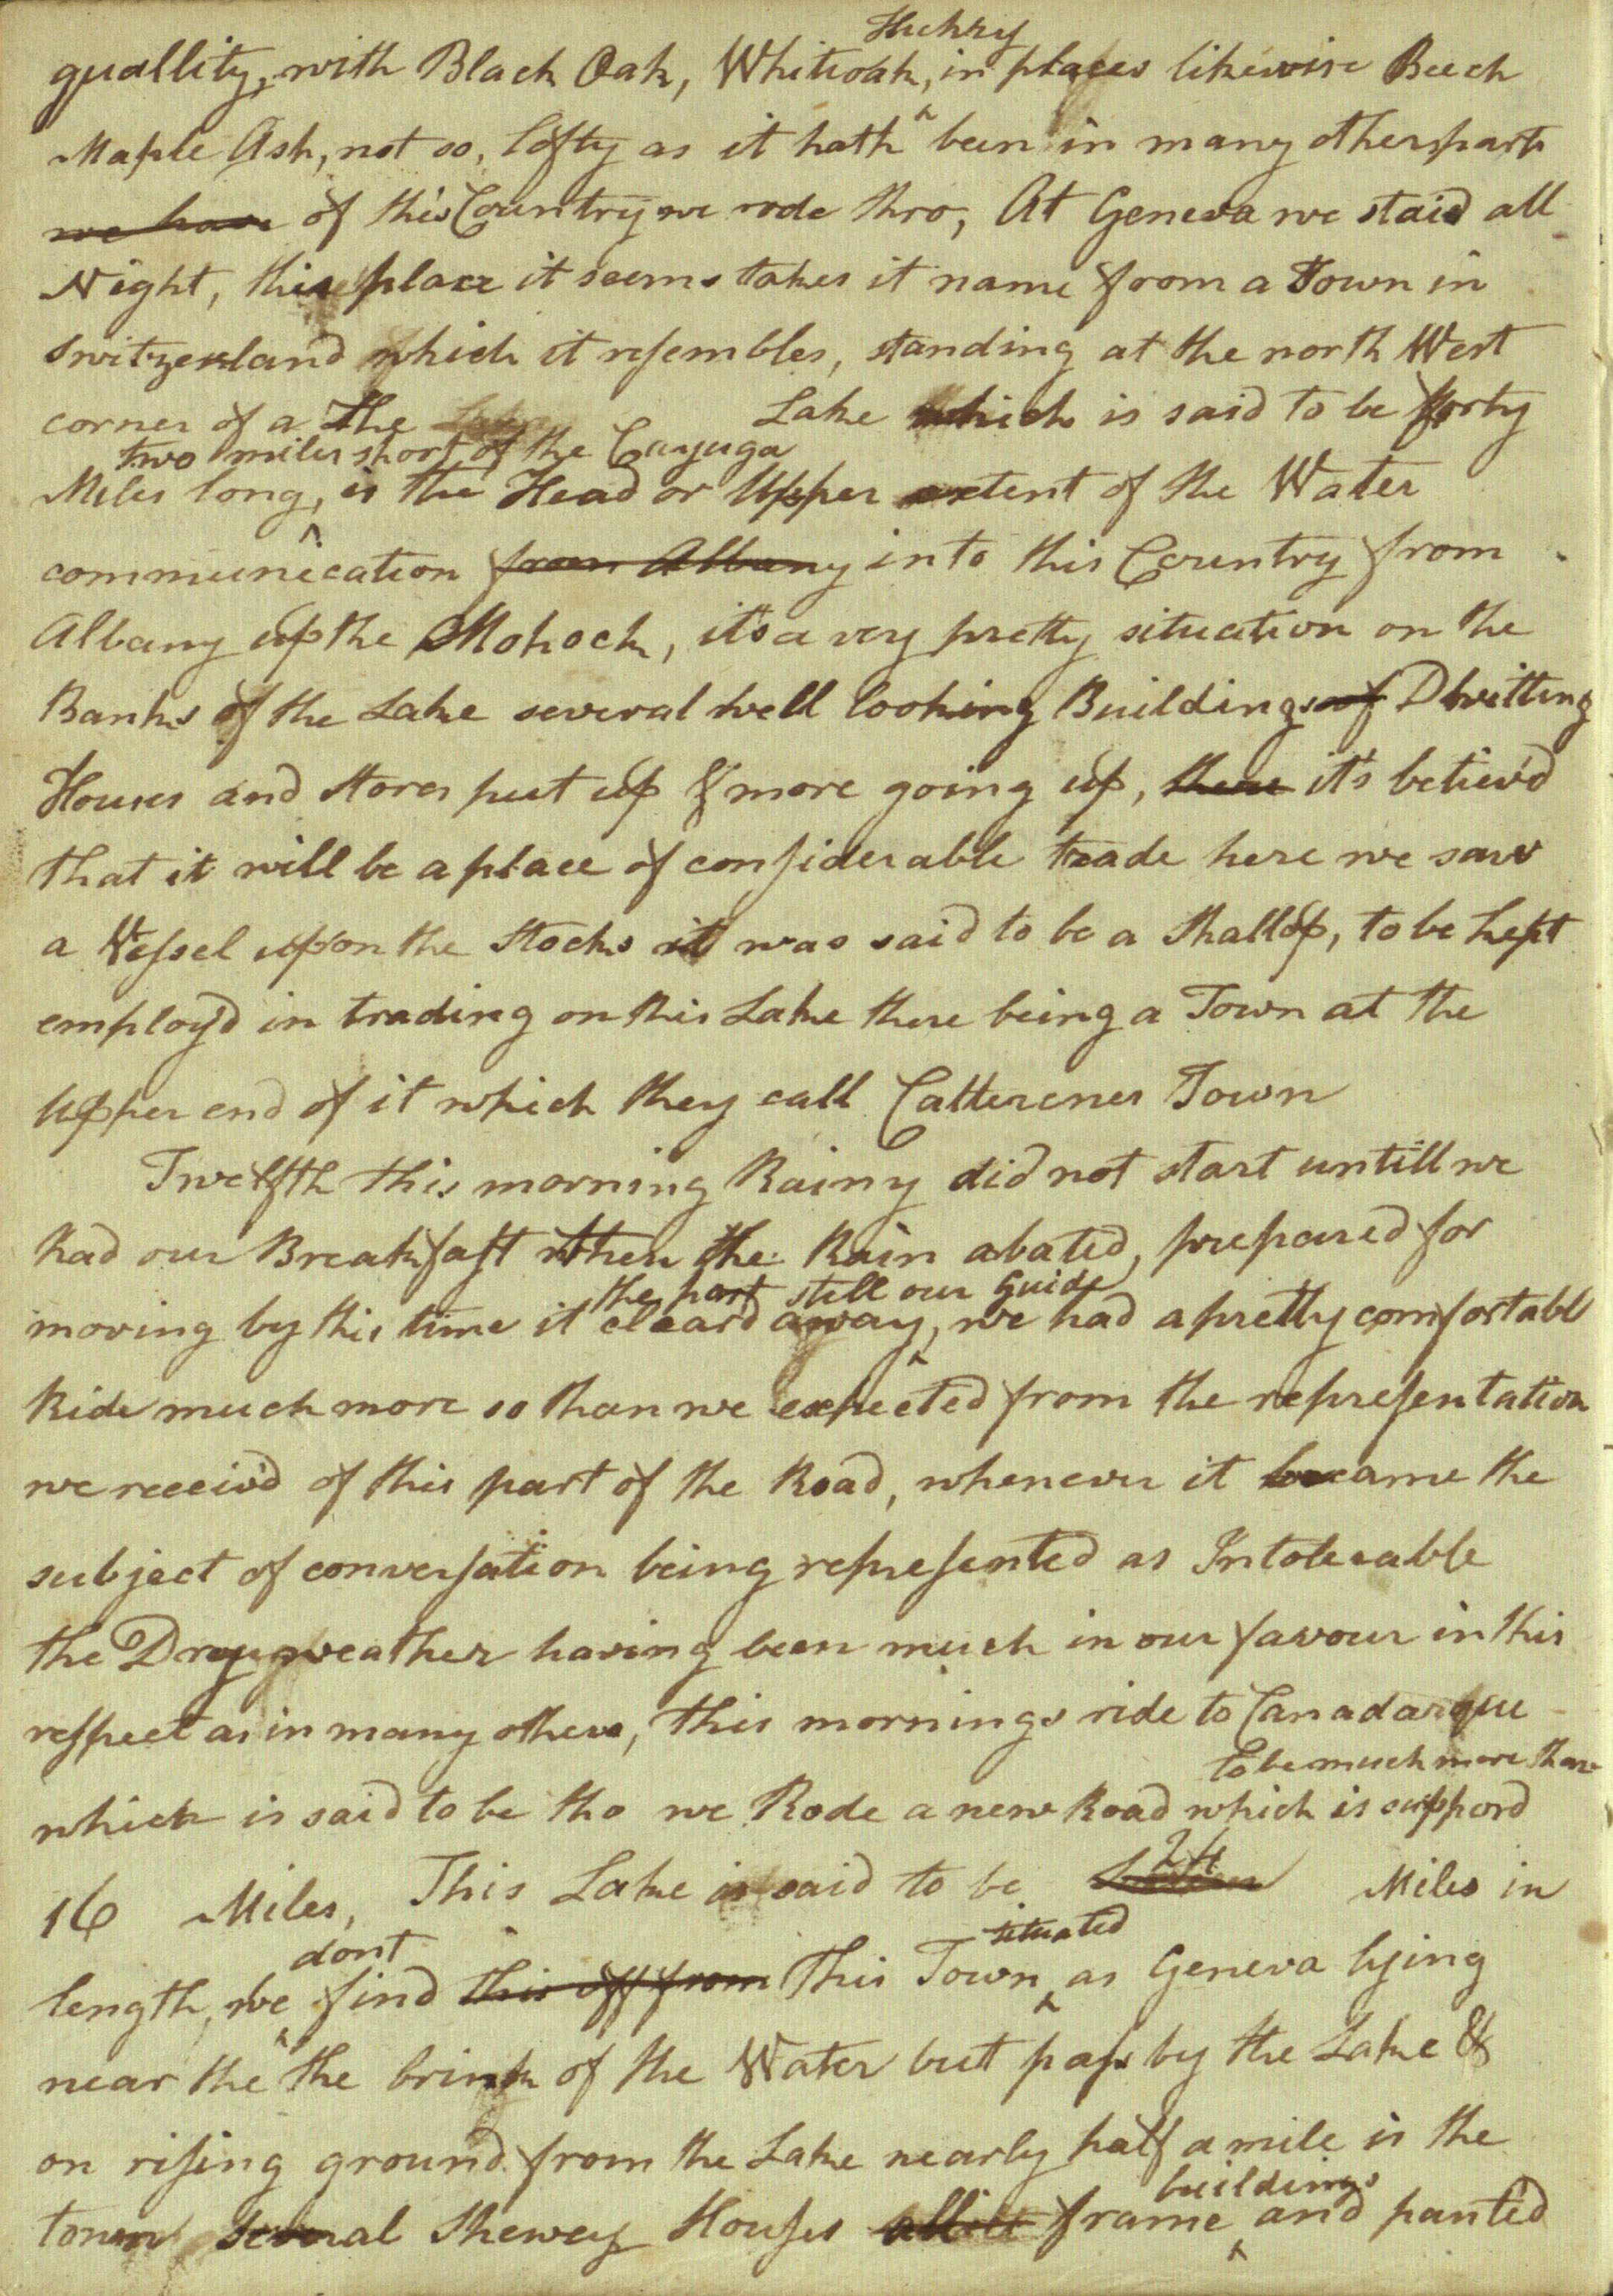 Hickry
quallity, with Black Oak, Whiteoak, in places likewise Beech
Maple Ash, not so, lofty as it hath been in many other parts
we have of this Country we rode thro, At Geneva we staid all
Night, this place it seems takes it name from a Town in
Switzerland which it resembles, standing at the north West
corner of a The Lake which is said to be forty
two miles short of the Cayuga
Miles long, is the Head or Upper extent of the Water
communication from Albany into this Country from
Albany up the Mohock, it's a very pretty situation on the
Banks of the Lake several well looking Buildings of Dwelling
Houses and Stores put up & more going up, there it's believ'd
that it will be a place of considerable trade here we saw
a Vessel upon the Stocks it was said to be a Shallop, to be kept
employ'd in trading on this Lake there being a Town at the
Upper end of it which they call Catterenes Town
Twelfth this morning Rainy did not start untill we
had our Breakfast when the Rain abated, prepared for
the port still our Guide
moving by this time it cleard away, we had a pretty comfortable
Ride much more so than we expected from the representation
we receiv'd of this part of the Road, whenever it became the
subject of conversation being represented as Intolerable
the Dry weather having been much in our favour in this
respect as in many others, this mornings ride to Canadarque
to be much more than
which is said to be tho we Rode a new Road which is suppord
24
16 Miles, This Lake is said to be Miles in
dont situated
length, we find this off from This Town as Geneva lying
near the the brink of the Water but pass by the Lake &
on rising ground from the Lake nearly half a mile is the
buildings
town several Shewey Houses frame and panted